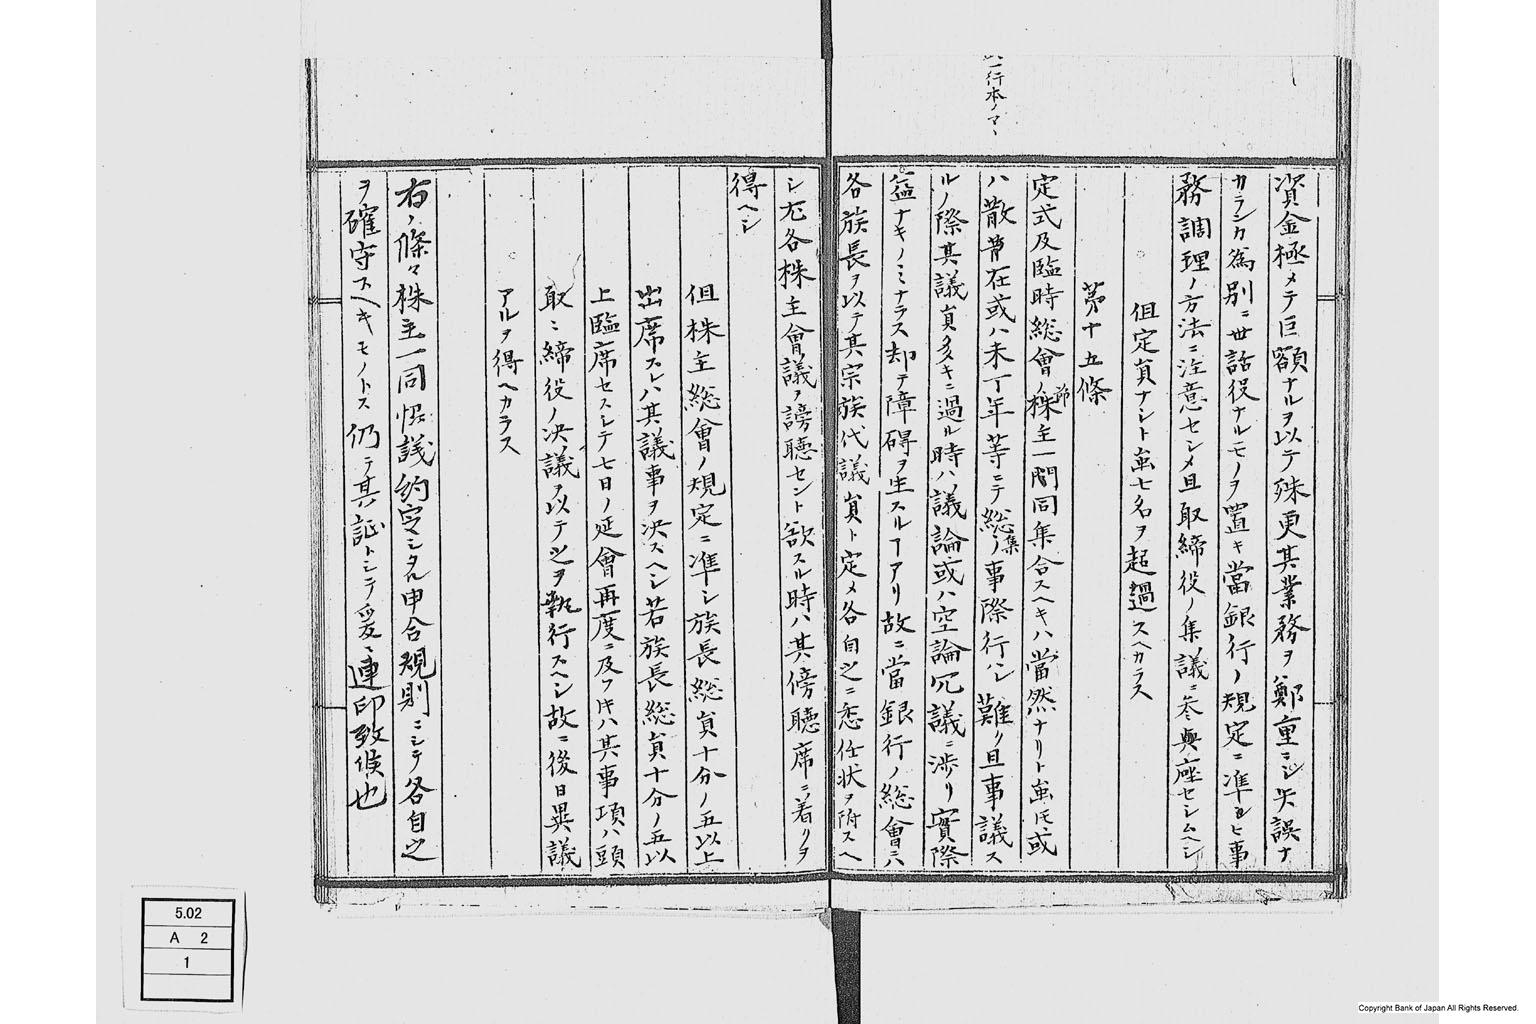 資金極メテ巨額ナルヲ以テ殊更其業務ヲ鄭重ニシ失誤ナ
カラシカ為別ニ世話役ナルモノヲ置キ當銀行ノ規定ニ準ヒ事
務調理ノ方法ニ注意セシメ且取締役ノ集議ニ参與座セシムヘシ
但定員ナシト雖七名ヲ超過スヘカラス
第十五條
定式及臨時総會ノ節株主一同集合スヘキハ當然ナリト雖𪜈或
ハ散昔在或ハ未丁年等ニテ総集ノ事際行ハレ難ク且事議ス
ルノ際其議員多キニ過ル時ハ議論或ハ空論冗議ニ渉リ實際
益ナキノミナラス却テ障碍ヲ生スルヿアリ故ニ當銀行ノ総會ニハ
各族長ヲ以テ其宗族代議員ト定メ各自之ニ委任状ヲ附スヘ
一行本ノマヽ
シ尤各株主會議ヲ謗聴セント欲スル時ハ其傍聴席ニ着クヲ
得ヘシ
但株主総會ノ規定ニ準シ族長総員十分ノ五以上
出席スレハ其議事ヲ決スヘシ若族長総員十分ノ五以
上臨席セスシテ七日ノ延會再度ニ及フ𪜈ハ其事項ハ頭
取ニ締役ノ決議ヲ以テ之ヲ執行スヘシ故ニ後日異議
アルヲ得ヘカラス
右ノ條々株主一同協議約定シタル申合規則ニシテ各自之
ヲ確守スヘキモノトス仍テ其証トシテ爰ニ連印致候也
5.02
A 2
1
Copyright Bank of Japan All Rights Reserved.